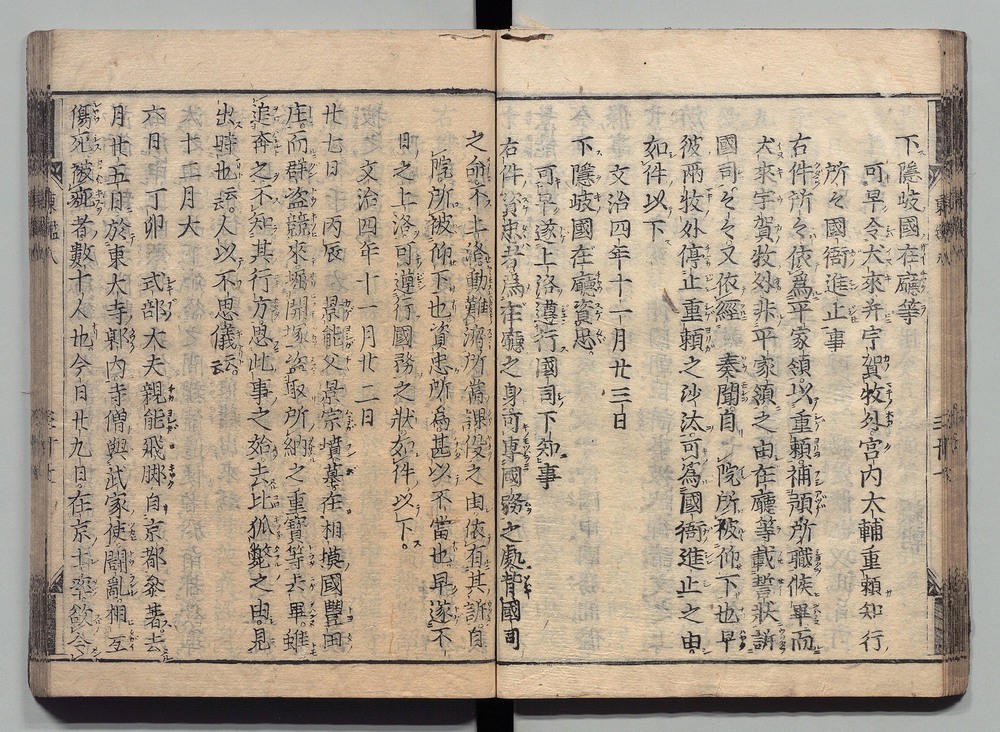 下隱岐國在廳等
可早令犬來并宇賀牧外宮内大輔重頼知行
所々國衙進止事
右件所々依爲平家領以重頼補預所職候畢而
犬來宇賀牧外非平家領之由在廳等載誓狀訴
國司々々又依經 奏聞自 院所被仰下也早
彼兩牧外停止重頼之沙汰可為國衙進止之由
如件以下
文治四年十一月廿二日
下隱岐國在廳資忠
可早遂上洛遵行國司下知事
右件資忠者爲在廳之身可專國務之處背國司
之命不上洛動難濟所當課役之由依有其訴自
院所被仰下也資忠所為甚以不當也早遂不
日之上洛可遵行國務之狀如件以下。
文治四年十一月廿二日
廿七日 丙辰 景能父景宗墳墓在相摸國豐田
庄而群盗競來堀開塚盗取所納之重寳等去畢雖
追奔之不知其行方思此事之始去比狐斃之由見
出時也云云人以不思儀云云
十二月大
六日 丁卯 式部大夫親能飛脚自京都參著去
月廿五日於東大寺郭内寺僧與武家使鬪亂相互
傷死被疵者數十人也今日廿九日在京士卒欲令